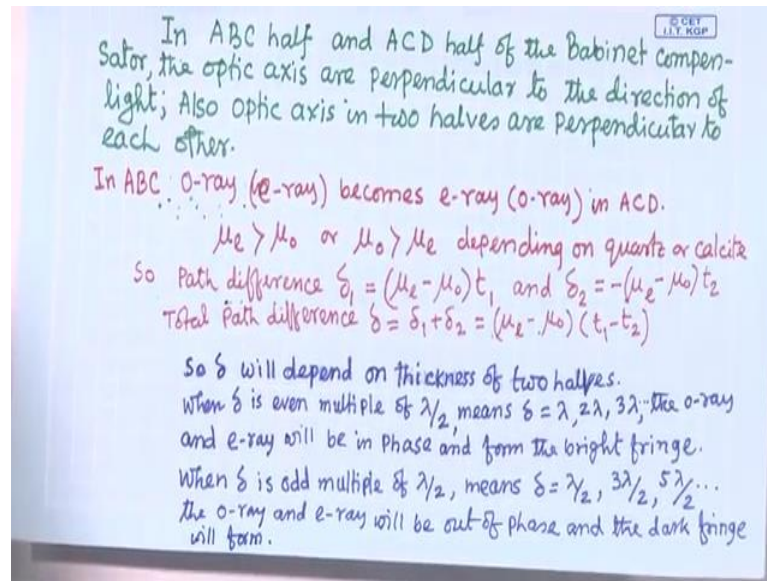 © CET
I.I.T. KGP
In ABC half and ACD half of the Babinet Compen-
sator, the optic axis are perpendicular to the direction of
light; Also optic axis in two halves are perpendicular to
each other.
In ABC O-ray (e-ray) becomes e-ray (o-ray) in ACD.
μe > μo or μo > μe depending on quartz or calcite
So Path difference δ1 = (μe - μo)t1 and δ2 = -(μe - μo)t2
Total Path difference δ = δ1 + δ2 = (μe - μo)(t1 - t2)
So δ will depend on thickness of two halves.
When δ is even multiple of λ/2, means δ = λ, 2λ, 3λ, the o-ray
and e-ray will be in phase and form the bright fringe.
When δ is odd multiple of λ/2, means δ = λ/2, 3λ/2, 5λ/2...
the o-ray and e-ray will be out of phase and the dark fringe
will form.